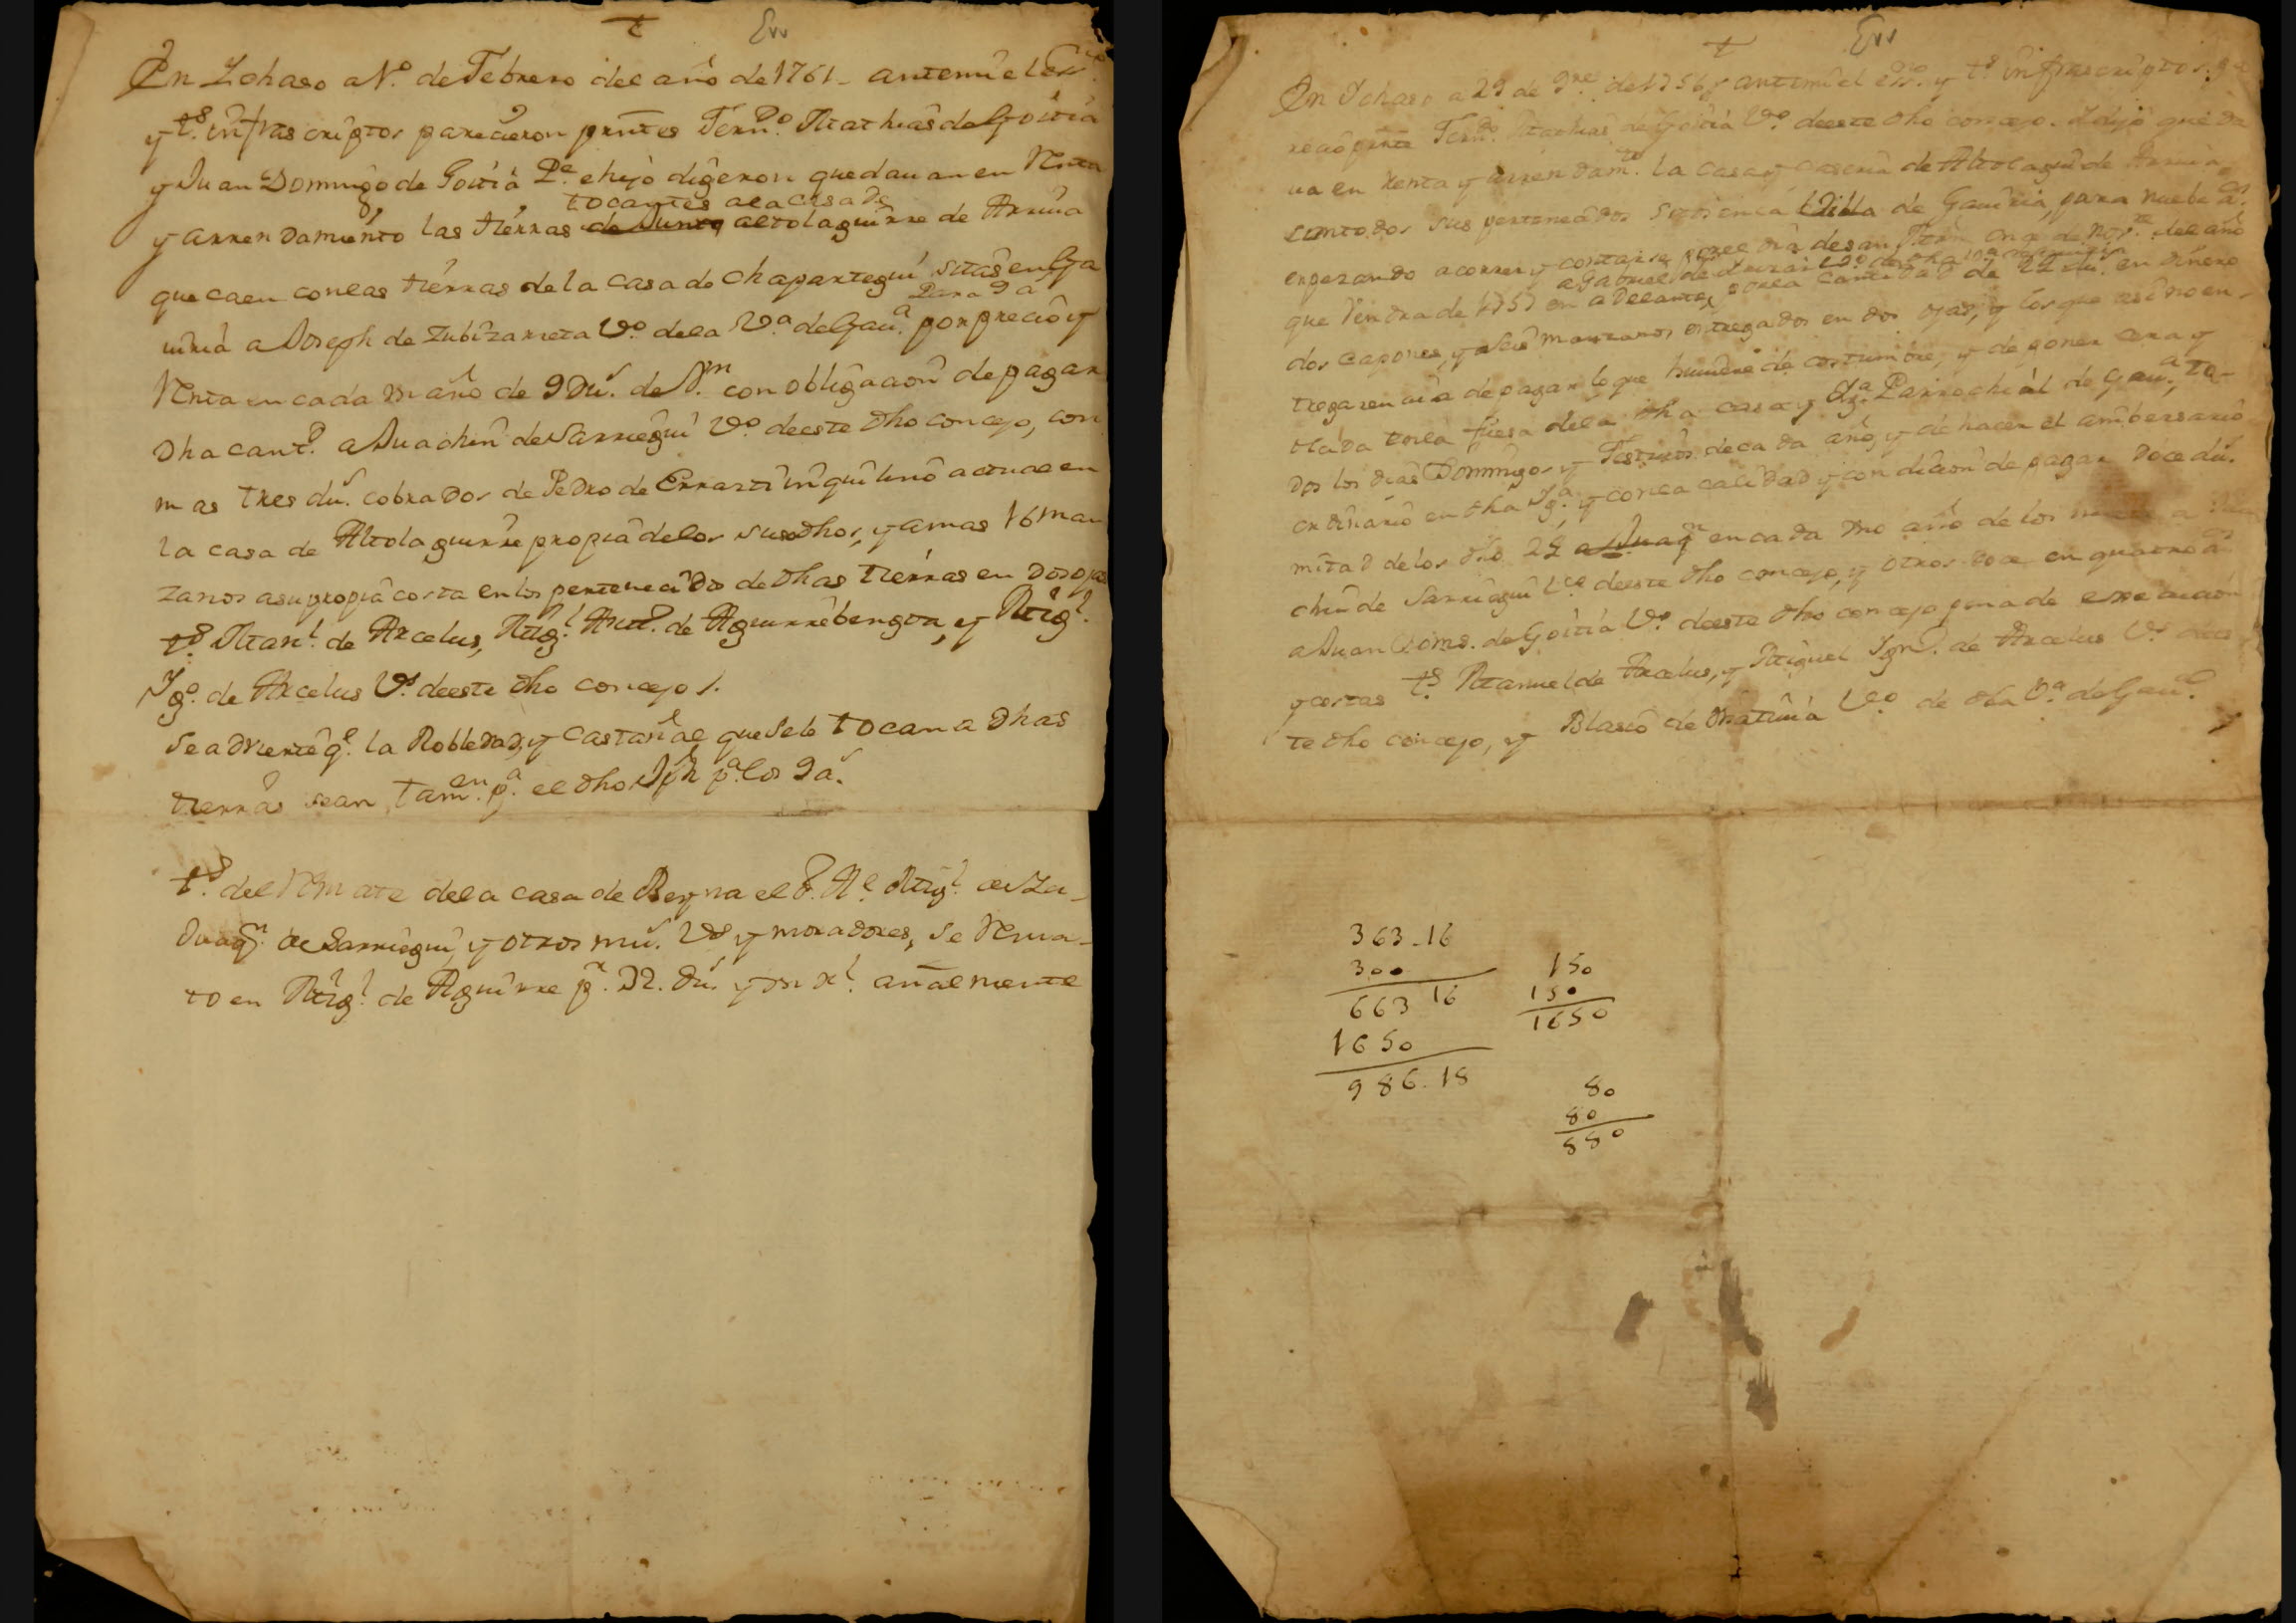 t
Evv
En Ychaso a 1º de Febrero del año de 1761 - ante mi el Essº
y tsº infras criptos parecieron prntes Fernº Mathias de Goitia
y Juan Domingo de Goitia Pe. e hijo digeron que dauan en Renta
tocantes a la casa de
y arrendamiento las tierras de Junto altolaguirre de Arria
que caen con las tierras de la casa de Chapartegui sitas en Ga
para 9 a
uiria a Joseph de Zubizarreta Vº de la Vª de Gauª por precio y
Renta en cada un año de 9 Du.s de Vn con obligacon de pagar
Dha cantd a Juachin de Sarriegui Vº de este dho concejo, con
mas tres du.s cobrador de Pedro de Errazti inquilino actual en
la casa de Altolaguirre propia de los susodhos, y a mas 16 man
zanos a su propia costa en los pertenecido de dhas tierras en dos ojas
tsº Manl. de Arcelus, Migl. Antº de Aguirrebengoa, y Migl.
Igº. de Arcelus Vs. de este dho concejo /.
Se advierte qe. la Robledad, y Castañal que se le tocan a dhas
tierras sean tamen. pª. el dho Jph pª. los 9 as.
tsº del Remate de la casa de Reyna el Migl. de Za-
Juaqn. de Sarriegui, y otros mu.s Vs y moradores, se Rema-
to en Migl. de Aguirre pr. 32. du.s y un rl. añalmente
t
Evv
En Ychaso a 29 de 9re de 1756 ante mi el essº. y tsº infrascriptos
recio prnte Fernº. Mathias de Goitia Vº de este dho concejo. Y dijo que da
ua en Renta y arrendamtº. la casa y caseria de Altolaguirre de Arria
con todos sus pertenecidos Villa de Gauiria, para nuebe as.
enpezando a correr y contarse por el dia de san Mrtin once de Nobre. del año
a Gabriel de Vº de dha
que Vendra de 1757 en adelante, por la cantidad de 22 du.s en dinero
dos capones, y seis manzanos entregados en dos ojas, y los que asi no en-
tregaren aia de pagar lo que huuiere de costumbre, y de poner cera y
oblada toda fuera de la dha casa y Igª. Parrochial de Gauª., to-
dos los dias Domingos y Festiuos de cada año, y de hacer el anibersario
ordinario en dha Igª. y con la calidad y condicion de pagar doce du.s
mitad de los dho 22 a Juaqn en cada uno año de los a Jua
chin de Sarriegui Vcº de este dho concejo, y otros doce en quatro as
a Juan Domº. de Goitia Vº de este dho concejo pena de execucion
y costas tsº Manuel de Arcelus, y Miguel Ignº. de Arcelus Vs de es
te dho concejo, y Blasio de Vcº de dha Vª de Gauª.
363-16
300
663 16
1650
986-18
150
150
1650
80
80
880